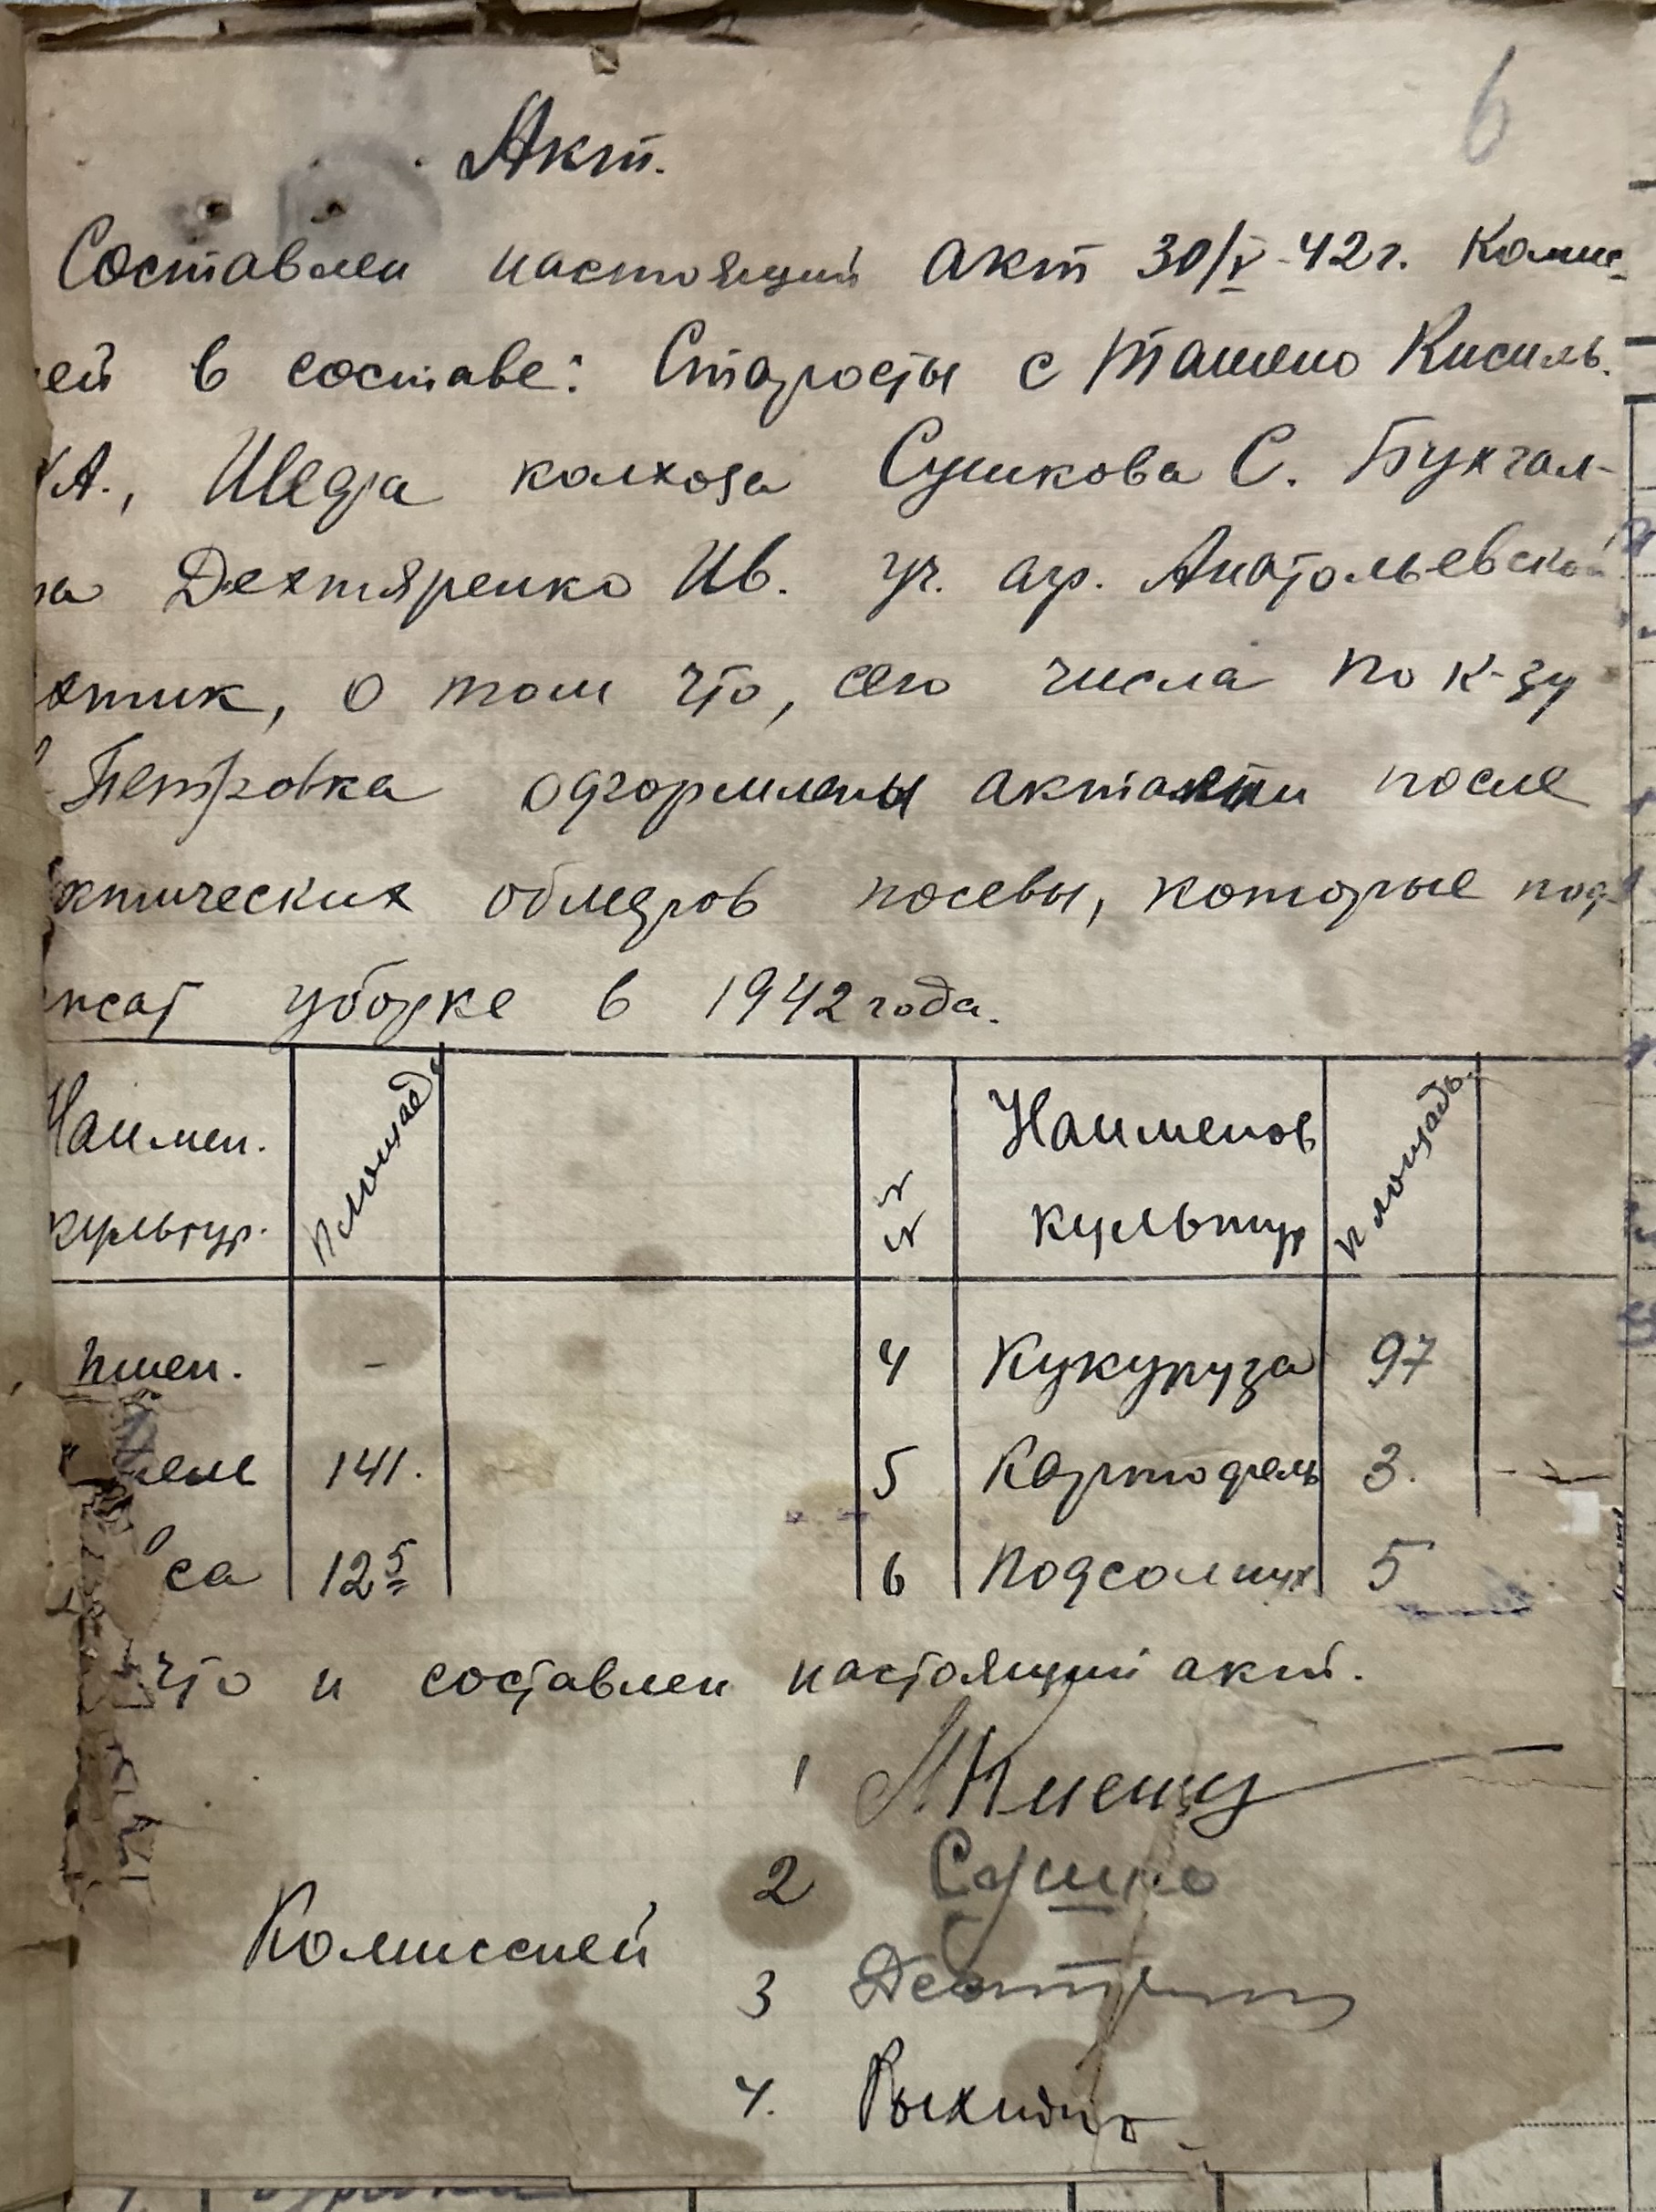 6
Акт.
Составлен настоящий акт 30/V-42г. Комис-
ей в составе: Старосты с Ташено Кисиль.
.А., Шефа колхоза Сушкова С. Бухгал-
ра Дехтяренко Ив. уч. агр. Анатольевской
хтик, о том что, сего числа по к-зу
Петровка оформлены актами после
ктических обмеров посевы, которые под-
жат уборке в 1942 года.
Наимен. культур. площадь № № Наименов культур площадь.
пшен. - 4 Кукуруза 97
141. 5 Картофель 3.
са 125 6 Подсолнух 5
что и составлен настоящий акт.
1
2 Сушко
Комиссией
3
4.